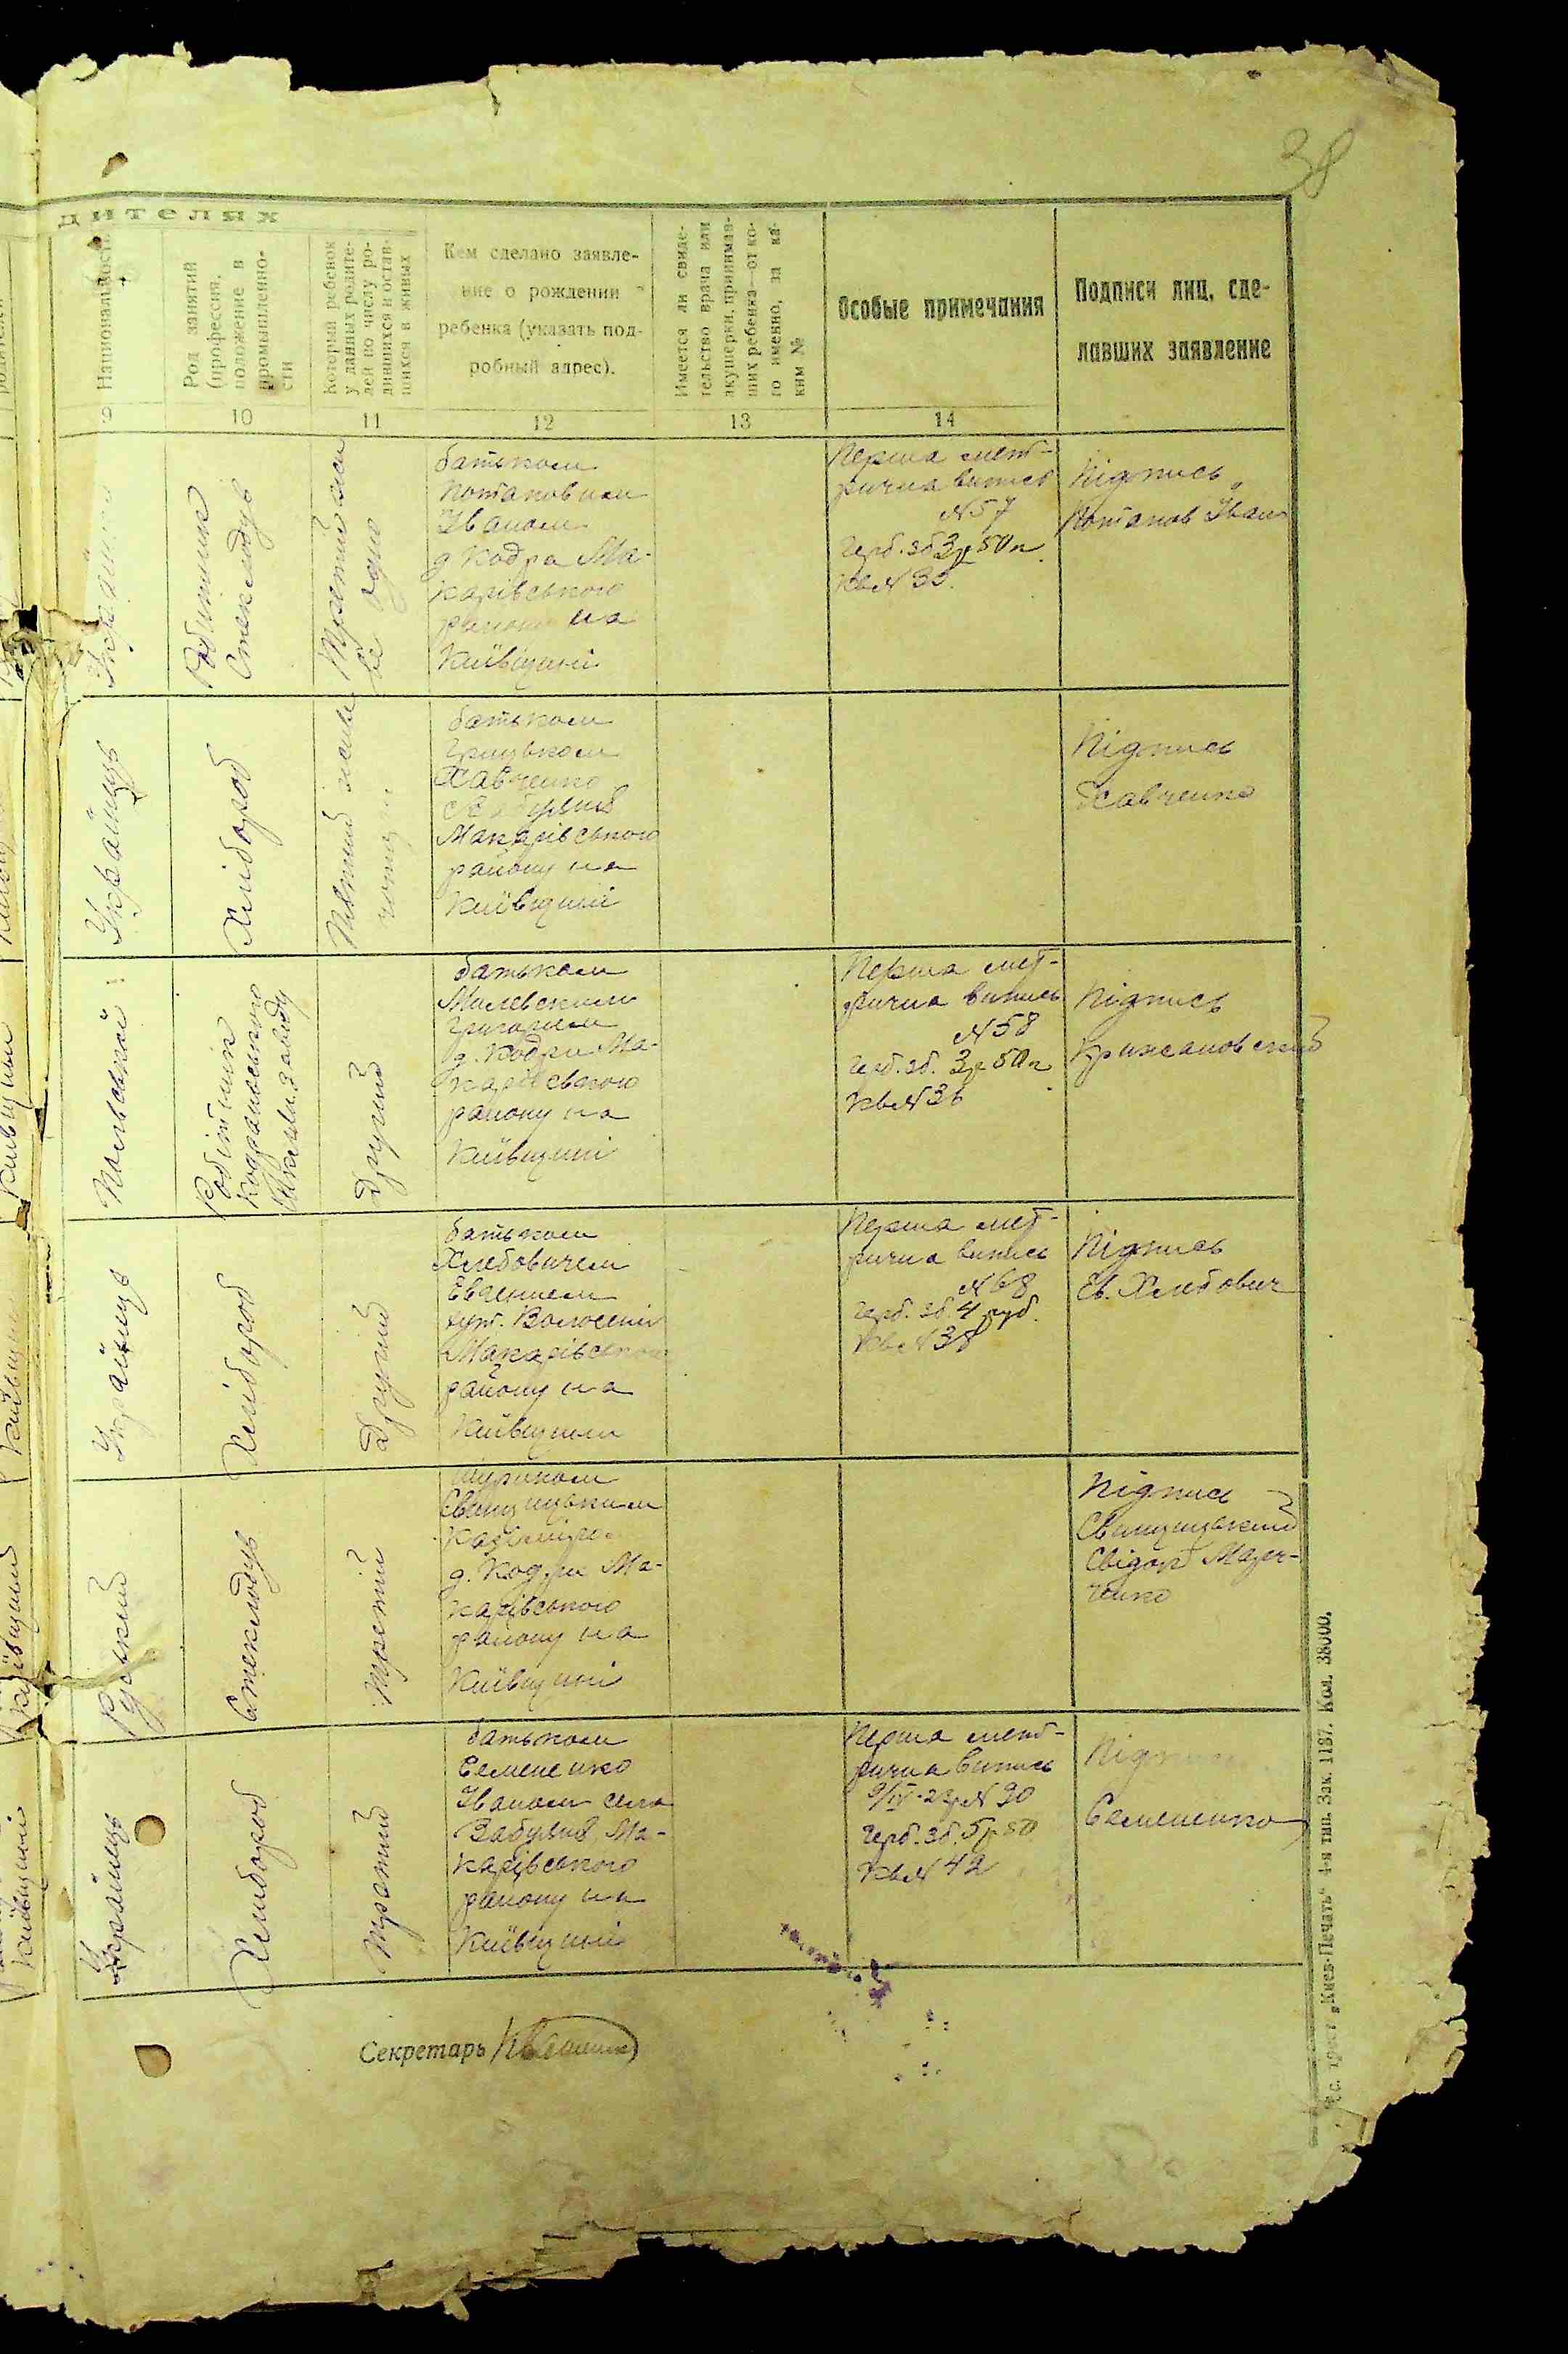 38
дителях
Национальность
Род занятий
(профессия,
положение в
промышленно-
сти
Который ребенок
у данных родите-
лей по числу ро-
дившихся и остав-
шихся в живых
Кем сделано заявле-
ние о рождении
ребенка (указать под-
робный адрес).
Имеется ли свиде-
тельство врача или
акушерки, принимав-
ших ребенка—от ко-
го именно, за ка-
ким №
Особые примечания
Подписи лиц, сде-
лавших заявление
9
10
11
12
13
14
Робітник
Стеклодувь
Третий
батьком
Потаповим
Іваном
д Кодра Ма-
карівського
району на
Київщині
Перша мет-
рична випись
N 57
Герб. зб 3р 50к
Кв N 35.
Підпись
Потапов Іван
Українець
Хлібород
батьком
Грицьком
Савченко
Макарівського
району на
Київщині
Підпись
Савченко
Польський
Робітник
Кодрянського
завиду
Другий
батьком
Григорием
д. Кодри Ма-
карівського
району на
Київщині
Перша мет-
рична випись
N 58
Герб. зб. 3р 50к
Кв N 36
Підпись
Крижановский
Українець
Хлібород
Другий
батьком
Хлебовичем
Евгением
хут.
Макарівського
району на
Київщини
Перша мет-
рична випись
N 68
Герб. зб. 4 руб.
Кв N 38
Підпись
Ев. Хлебович
Руський
Стеклодувь
Третий
д. Кодри Ма-
карівського
району на
Київщині
Підпись
Свідок
Українець
Хлібород
Третий
батьком
Семененко
Іваном села
Забуяня Ма-
карівського
району на
Київщині
Перша мет-
рична випись
9/IV-23р N 90
Герб. зб. 5р 50
Кв N 42
Семененко
Секретарь
„Киев-Печать“ 4-я тип. Зак. 1187. Кол. 38000.